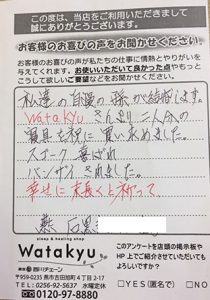 この度は、当店をご利用いただきまして
誠にありがとうございます。
お客様のお喜びの声をお聞かせください
お客様のお喜びの声が私たちの仕事に情熱とやりがいを
与えてくれます。お使いいただいて良かった点やもっと
こうして欲しいご要望などをお聞かせください。
私達の自慢の孫が結婚します。
Watakyuさんより二人分の
寝具を祝に買い求めました。
スゴーク喜ばれ
バンザイされました。
幸せに末長くと祈って
燕 石黒
sleep & healing shop
Watakyu
西川チェーン
〒959-0235 燕市吉田旭町4丁目2-17
TEL: 0256-92-5637 水曜定休
0120-97-8880
このアンケートを店頭の掲示板や
HP上でご紹介させていただいても
よろしいですか？
□YES(匿名で) □NO